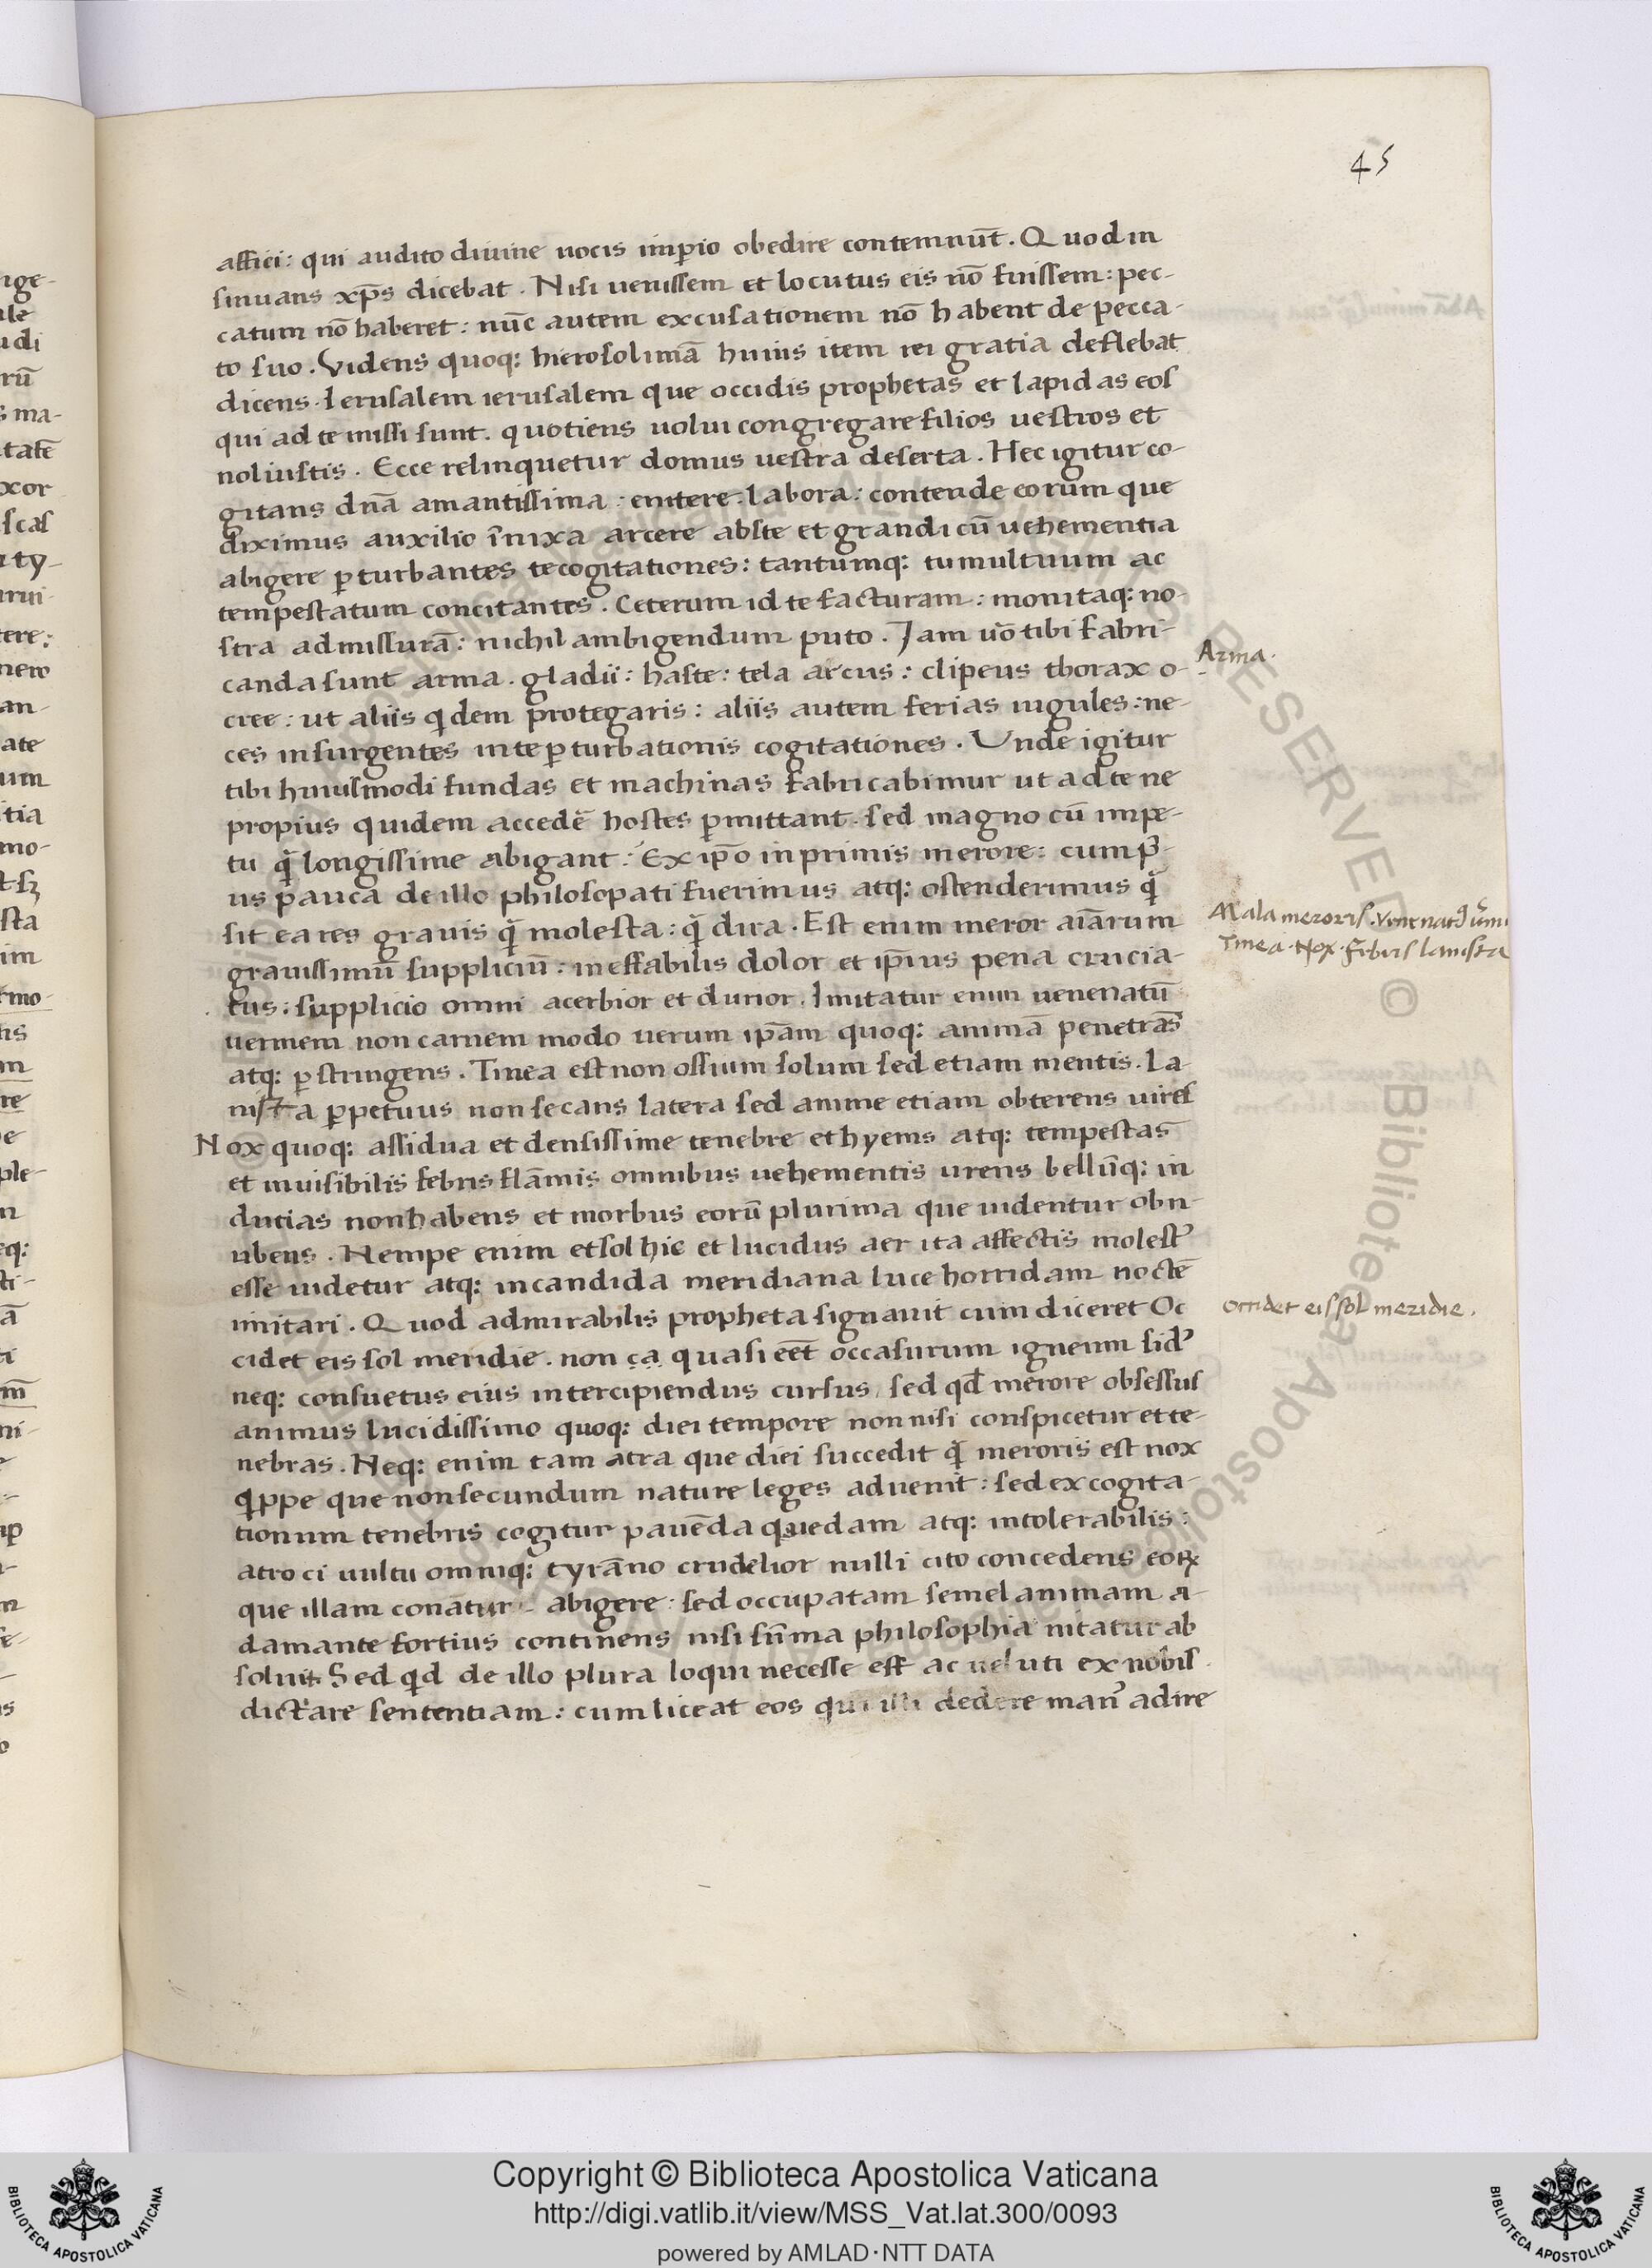 45
affici: qui audito divine uocis imperio obedire contemnūt. Quod in
sinuans xp̄s dicebat. Nisi uenissem et locutus eis nō fuissem: pec-
catum nō haberet: nūc autem excusationem nō habent de pecca-
to suo. Videns quoq: hierosolimā huius item rei gratia deflebat
dicens. Ierusalem ierusalem que occidis prophetas et lapidas eos
qui ad te missi sunt. quotiens uolui congregare filios uestros et
noluistis. Ecce relinquetur domus uestra deserta. Hec igitur co-
gitans dn̄a amantissima: enitere. labora: contende eorum que
diximus auxilio īnixa arcere abste et grandi cū uehementia
abigere p̱turbantes te cogitationes: tantumq: tumultuum ac
tempestatum concitantes. Ceterum id te facturam: monitaq: no-
stra admissurā: nichil ambigendum puto. Iam uō tibi fabri-
canda sunt arma. gladii: haste: tela arcus: clipeus thorax o-
cree: ut aliis qidem protegaris: aliis autem ferias iugules: ne-
ces insurgentes in te p̱turbationis cogitationes. Unde igitur
tibi huiusmodi fundas et machinas fabricabimur ut ad te ne
propius quidem accedē hostes p̱mittant. sed magno cū impe-
tu q̄ longissime abigant: Ex ip̄o inprimis merore: cum pri-
us pauca de illo philosopati fuerimus atq: ostenderimus q̄
sit ea res grauis q̄ molesta: q̄ dira. Est enim meror aīarum
grauissimū suppliciū: ineffabilis dolor et ip̄ius pena crucia-
tus: supplicio omni acerbior et durior. Imitatur enim uenenatū
uermem non carnem modo uerum ip̄am quoq: animā penetrās
atq: p̱stringens. Tinea est non ossium solum sed etiam mentis. La-
nista p̱petuus non secans latera sed anime etiam obterens uires
Nox quoq: assidua et densissime tenebre et hyems atq: tempestas
et inuisibilis febris flāmis omnibus uehementis urens bellūq: in
ducias non habens et morbus eorū plurima que uidentur obn-
ubens. Nempe enim et sol hic et lucidus aer ita affectis molest᾽
esse uidetur atq: in candida meridiana luce horridam noctē
imitari. Quod admirabilis propheta signauit cum diceret Oc
cidet eis sol meridie. non ca quasi eēt occasurum igneum sid᾽
neq: consuetus eius intercipiendus cursus, sed qd̄ merore obsessus
animus lucidissimo quoq: diei tempore non nisi conspicetur et te-
nebras. Neq: enim tam atra que diei succedit q̄ meroris est nox
qippe que non secundum nature leges aduenit: sed ex cogita-
tionum tenebris cogitur pauēda quedam atq: intolerabilis:
atroci uultu omniq: tyrāno crudelior nulli cito concedens eoꝝ
que illam conātur abigere: sed occupatam semel animam a-
damante fortius continens nisi sūma philosophia nitatur ab
soluit. Sed qid de illo plura loqui necesse est ac ueluti ex nobis
dictare sententiam: cum liceat eos qui illi dedere man᾽ adire
Arma.
Mala meroris. Venenatꝰ
Tinea. Nox. Febris lanista
Occidet eis sol meridie.
Copyright © Biblioteca Apostolica Vaticana
http://digi.vatlib.it/view/MSS_Vat.lat.300/0093
powered by AMLAD·NTT DATA
BIBLIOTECA APOSTOLICA VATICANA
BIBLIOTECA APOSTOLICA VATICANA